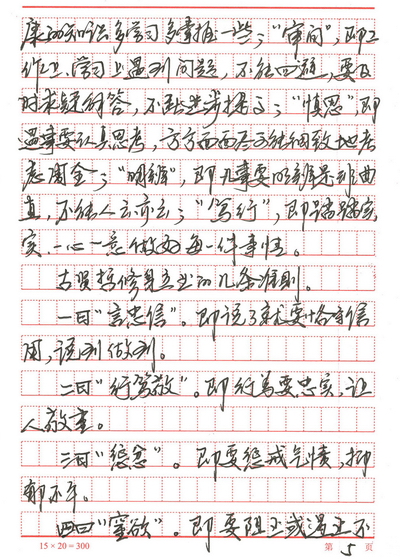 康的知识多学习多掌握一些；“审问”，即工
作上、学习上遇到问题，不能回避，要及
时求疑问答，不耻；“慎思”，即
遇事要认真思考，方方面面尽可能细致地考
虑周全；“明辨”，即凡事要明辨是非曲
直，不能人云亦云；“笃行”，即踏踏实
实、一心一意做好每一件事情。
古贤哲修身立业的几条准则。
一曰“言忠信”。即说了就要恪守信
用，说到做到。
二曰“行笃敬”。即行为要忠实，让
人敬重。
三曰“惩忿”。即要惩戒气愤，抑
郁不平。
四曰“窒欲”。即要阻止或遏止不
15×20=300 第 5 页